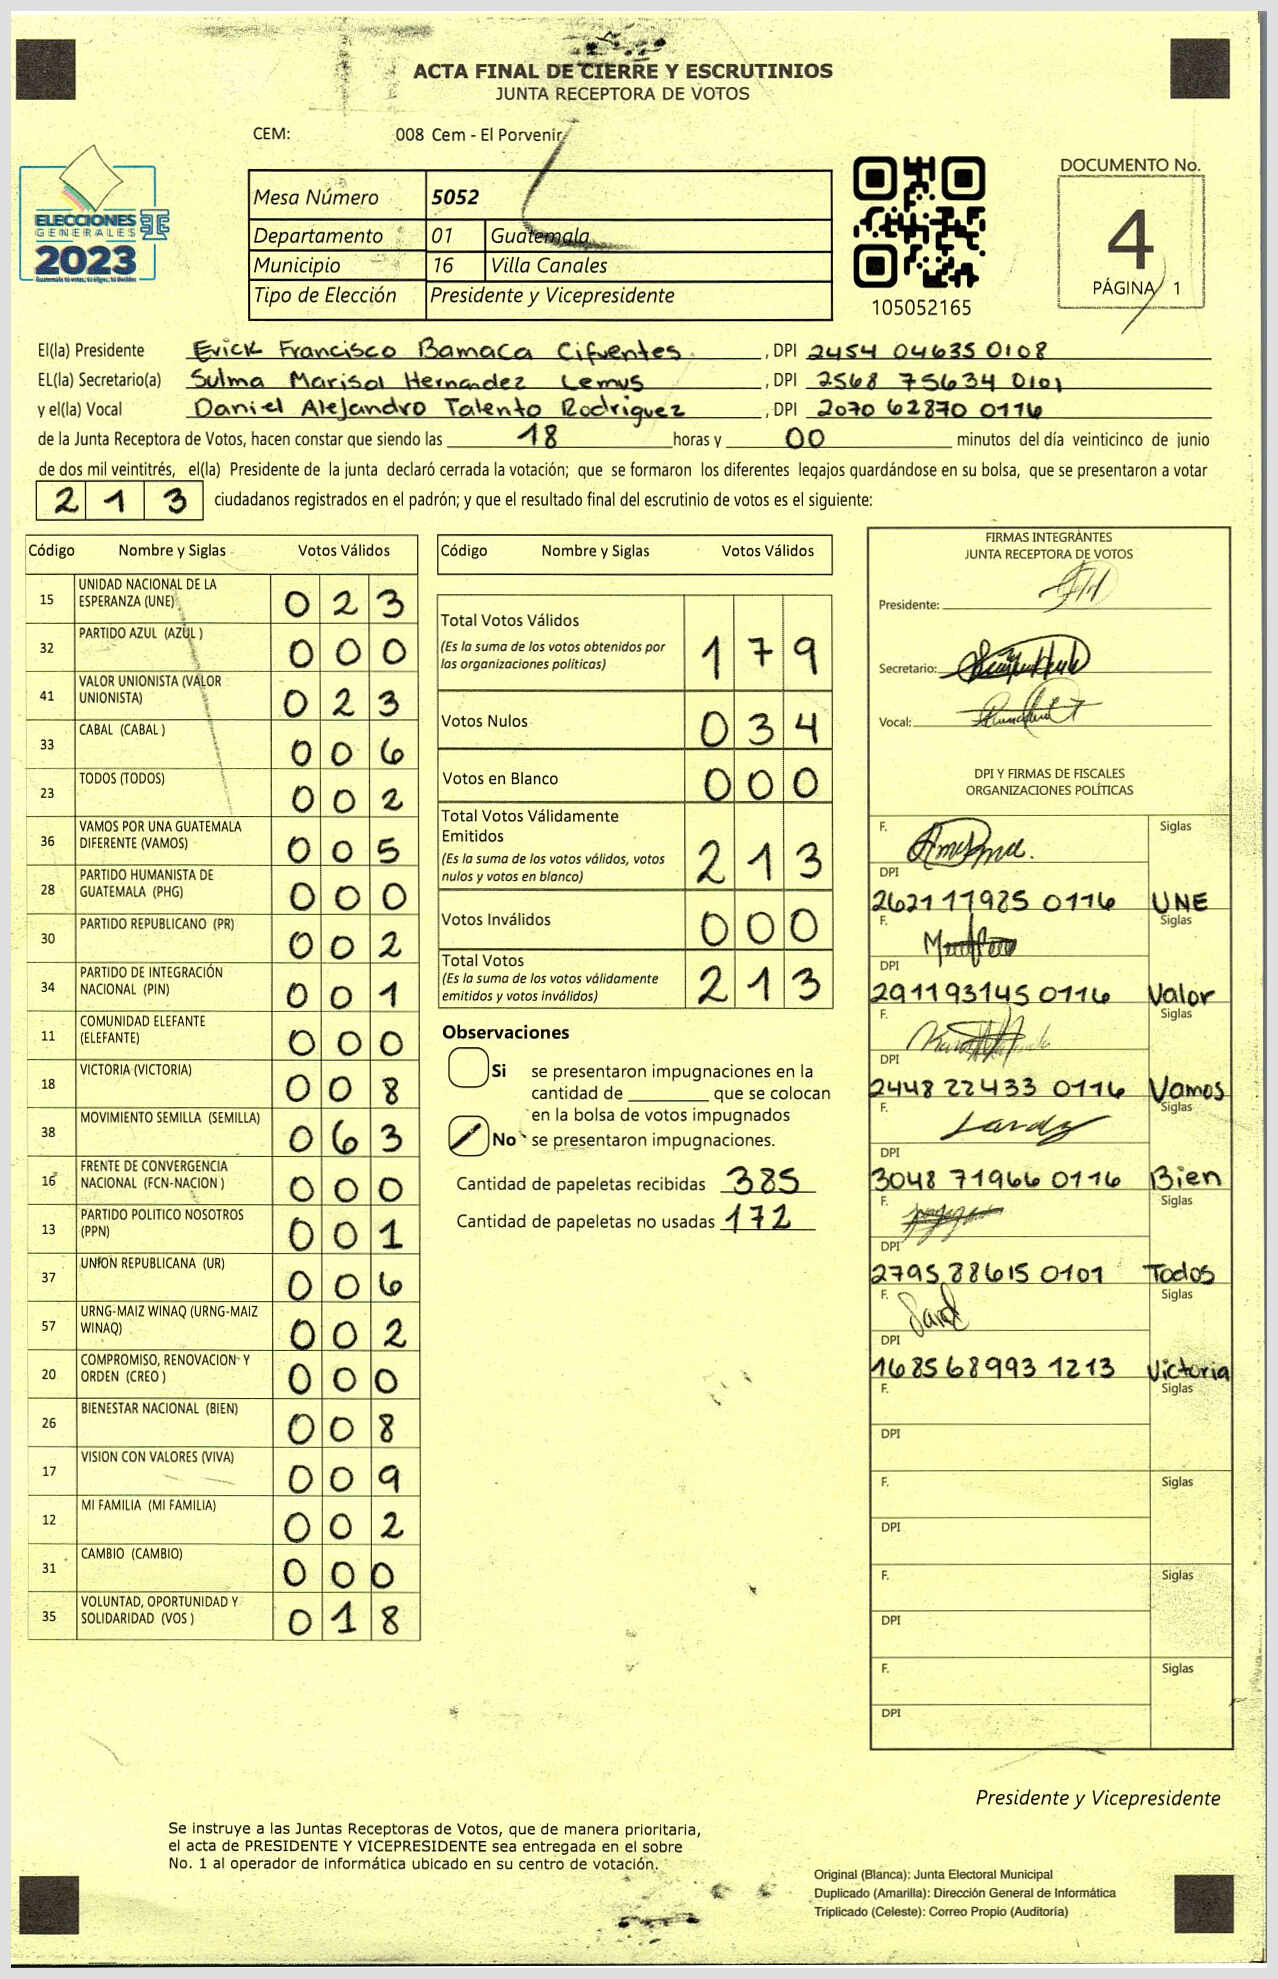 ACTA FINAL DE CIERRE Y ESCRUTINIOS
JUNTA RECEPTORA DE VOTOS
CEM: 008 Cem - El Porvenir
ELECCIONES
GENERALES
2023
Guatemala tú votas, tú eliges, tú decides
Mesa Número 5052
Departamento 01 Guatemala
Municipio 16 Villa Canales
Tipo de Elección Presidente y Vicepresidente
105052165
DOCUMENTO No.
4
PÁGINA 1
El(la) Presidente Erick Francisco Bamaca Cifuentes, DPI 2454 04635 0108
EL(la) Secretario(a) Sulma Marisol Hernandez Lemus, DPI 2568 75634 0101
y el(la) Vocal Daniel Alejandro Talento Rodriguez, DPI 2070 62870 0116
de la Junta Receptora de Votos, hacen constar que siendo las 18 horas y 00 minutos del día veinticinco de junio
de dos mil veintitrés, el(la) Presidente de la junta declaró cerrada la votación; que se formaron los diferentes legajos guardándose en su bolsa, que se presentaron a votar
213 ciudadanos registrados en el padrón; y que el resultado final del escrutinio de votos es el siguiente:
Código Nombre y Siglas Votos Válidos
15 UNIDAD NACIONAL DE LA
ESPERANZA (UNE) 0 2 3
32 PARTIDO AZUL (AZUL ) 0 0 0
41 VALOR UNIONISTA (VALOR
UNIONISTA) 0 2 3
33 CABAL (CABAL ) 0 0 6
23 TODOS (TODOS) 0 0 2
36 VAMOS POR UNA GUATEMALA
DIFERENTE (VAMOS) 0 0 5
28 PARTIDO HUMANISTA DE
GUATEMALA (PHG) 0 0 0
30 PARTIDO REPUBLICANO (PR) 0 0 2
34 PARTIDO DE INTEGRACIÓN
NACIONAL (PIN) 0 0 1
11 COMUNIDAD ELEFANTE
(ELEFANTE) 0 0 0
18 VICTORIA (VICTORIA) 0 0 8
38 MOVIMIENTO SEMILLA (SEMILLA) 0 6 3
16 FRENTE DE CONVERGENCIA
NACIONAL (FCN-NACION ) 0 0 0
13 PARTIDO POLITICO NOSOTROS
(PPN) 0 0 1
37 UNION REPUBLICANA (UR) 0 0 6
57 URNG-MAIZ WINAQ (URNG-MAIZ
WINAQ) 0 0 2
20 COMPROMISO, RENOVACION Y
ORDEN (CREO ) 0 0 0
26 BIENESTAR NACIONAL (BIEN) 0 0 8
17 VISION CON VALORES (VIVA) 0 0 9
12 MI FAMILIA (MI FAMILIA) 0 0 2
31 CAMBIO (CAMBIO) 0 0 0
35 VOLUNTAD, OPORTUNIDAD Y
SOLIDARIDAD (VOS ) 0 1 8
Código Nombre y Siglas Votos Válidos
Total Votos Válidos
(Es la suma de los votos obtenidos por
las organizaciones políticas) 1 7 9
Votos Nulos 0 3 4
Votos en Blanco 0 0 0
Total Votos Válidamente
Emitidos
(Es la suma de los votos válidos, votos
nulos y votos en blanco) 2 1 3
Votos Inválidos 0 0 0
Total Votos
(Es la suma de los votos válidamente
emitidos y votos inválidos) 2 1 3
Observaciones
Si se presentaron impugnaciones en la
cantidad de ________ que se colocan
en la bolsa de votos impugnados
No se presentaron impugnaciones.
Cantidad de papeletas recibidas 385
Cantidad de papeletas no usadas 172
FIRMAS INTEGRANTES
JUNTA RECEPTORA DE VOTOS
Presidente:
Secretario:
Vocal:
DPI Y FIRMAS DE FISCALES
ORGANIZACIONES POLÍTICAS
F. Siglas
DPI
2621 11985 0116 UNE
F. Siglas
DPI
291193145 0116 Valor
F. Siglas
DPI
2448 22433 0116 Vamos
F. Siglas
DPI
3048 71966 0116 Bien
F. Siglas
DPI
2795 88615 0101 Todos
F. Siglas
DPI
1685 68993 1213 Victoria
F. Siglas
DPI
F. Siglas
DPI
F. Siglas
DPI
F. Siglas
DPI
Presidente y Vicepresidente
Se instruye a las Juntas Receptoras de Votos, que de manera prioritaria,
el acta de PRESIDENTE Y VICEPRESIDENTE sea entregada en el sobre
No. 1 al operador de informática ubicado en su centro de votación.
Original (Blanca): Junta Electoral Municipal
Duplicado (Amarilla): Dirección General de Informática
Triplicado (Celeste): Correo Propio (Auditoría)